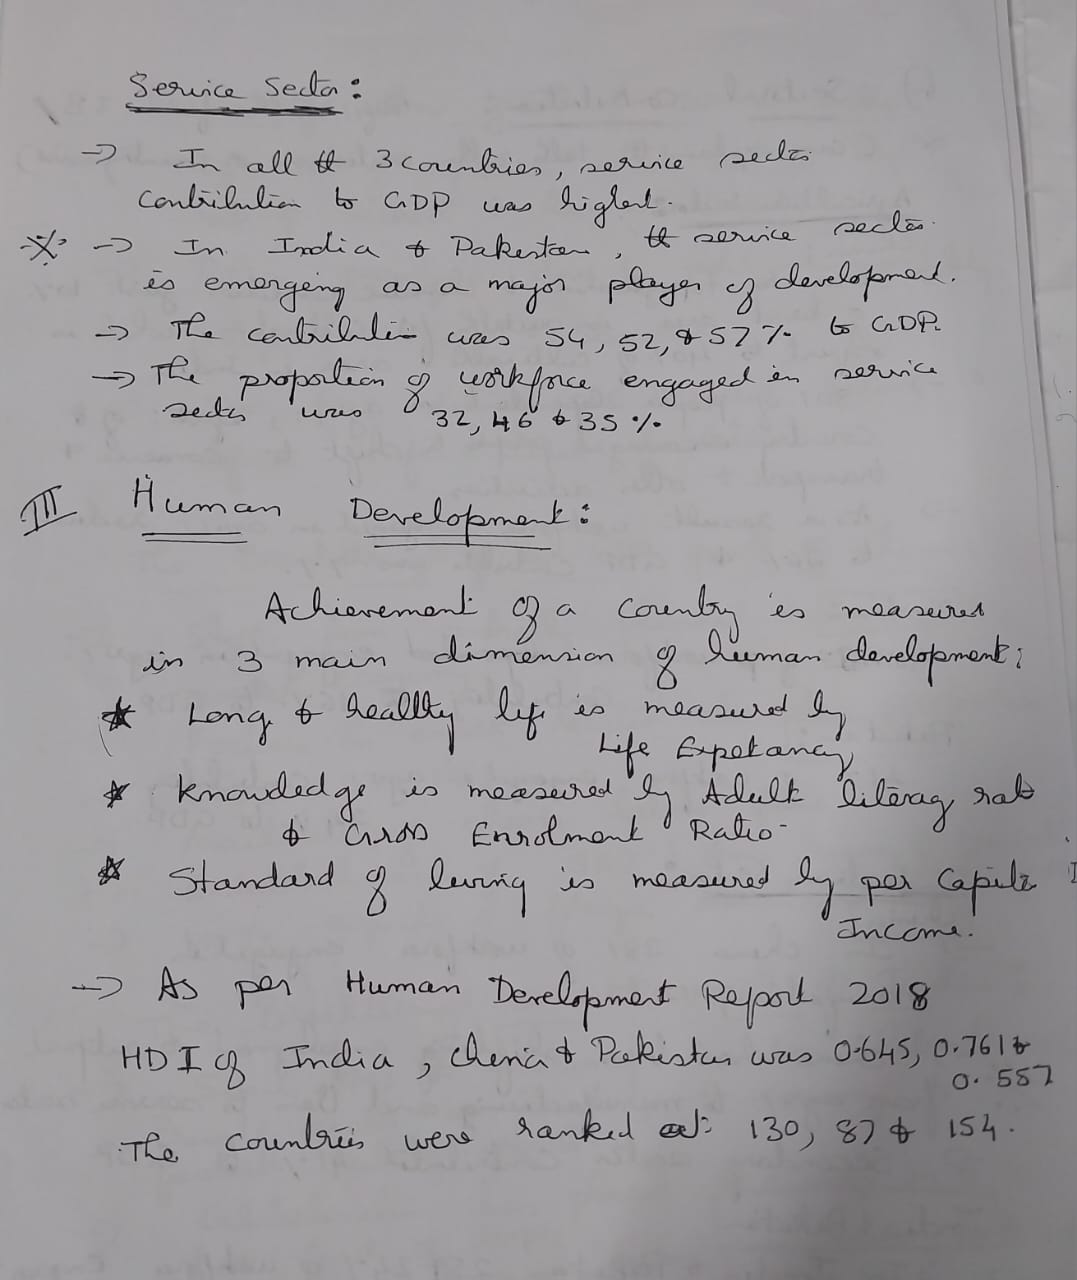 Service Sector:
→ In all the 3 countries, service sector
contribution to GDP was highest.
→ In India & Pakistan, the service sector
is emerging as a major player of development.
→ The contribution was 54, 52, & 57 % to GDP.
→ The proportion of workforce engaged in service
sector was 32, 46 & 35 %.
III Human Development:
Achievement of a country is measured
in 3 main dimension of human development:
* Long & healthy life is measured by
Life Expetancy
* Knowledge is measured by Adult literacy rate
& Gross Enrolment Ratio-
* Standard of living is measured by per Capita
Income.
→ As per Human Development Report 2018
HDI of India, China & Pakistan was 0.645, 0.761 &
0.557
The Countries were ranked at 130, 87 & 154.